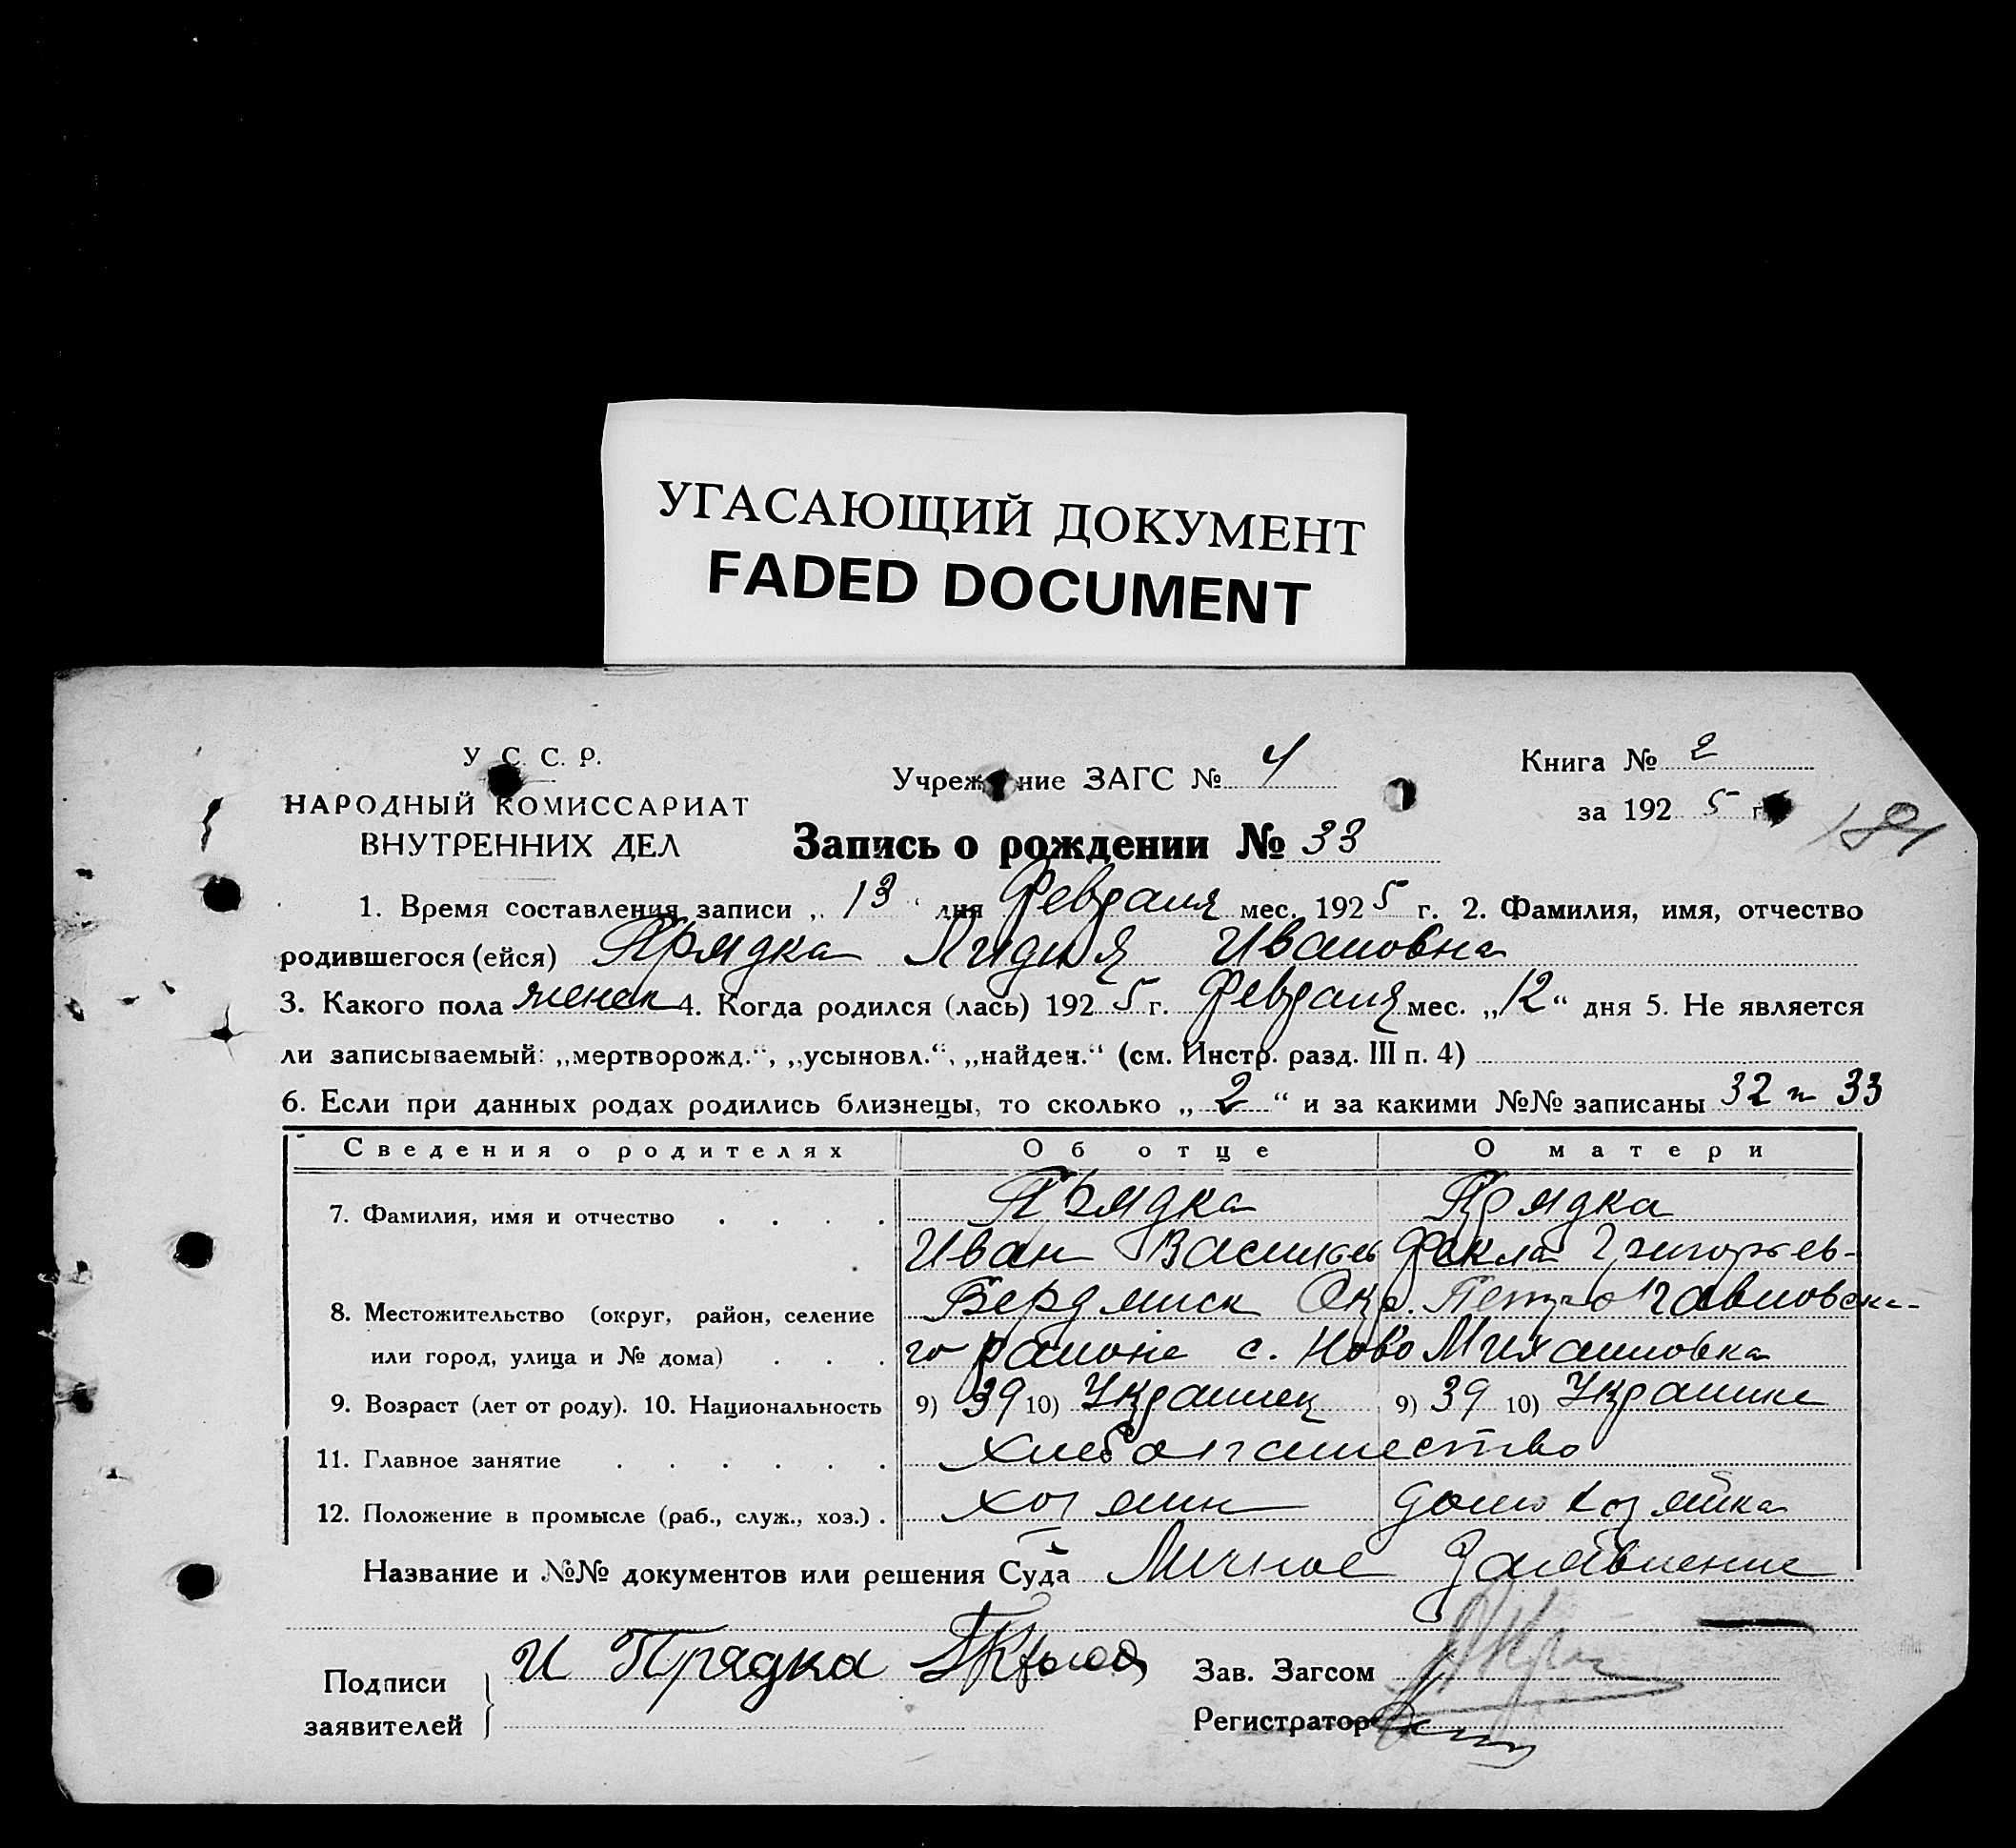 УГАСАЮЩИЙ ДОКУМЕНТ
FADED DOCUMENT
У С. С. Р.
НАРОДНЫЙ КОМИССАРИАТ
ВНУТРЕННИХ ДЕЛ
Учреж ние ЗАГС № 4
Книга № 2
за 1925 г.
181
Запись о рождении № 33
1. Время составления записи „ 13 " дня Февраля мес. 1925 г. 2. Фамилия, имя, отчество
родившегося (ейся) Прядка Лидия Ивановна
3. Какого пола женск 4. Когда родился (лась) 1925 г. Февраля мес. „12“ дня 5. Не является
ли записываемый: „мертворожд.“, „усыновл.“, „найден.“ (см. Инстр. разд. III п. 4)
6. Если при данных родах родились близнецы, то сколько „ 2 “ и за какими №№ записаны 32 и 33
Сведения о родителях Об отце О матери
7. Фамилия, имя и отчество . . . . Прядка Прядка
Иван Васильев Фекла Григорьев-
8. Местожительство (округ, район, селение Бердянск Окр. Петро Павловска-
или город, улица и № дома) . . . го района с. Ново Михайловка
9. Возраст (лет от роду). 10. Национальность 9) 39 10) Украинец 9) 39 10) Украинка
11. Главное занятие . . . . . . хлебопашество
12. Положение в промысле (раб., служ., хоз.) . хозяин домохозяйка
Название и №№ документов или решения Суда Личное Заявление
Подписи
заявителей
И Прядка
Зав. Загсом
Регистратор